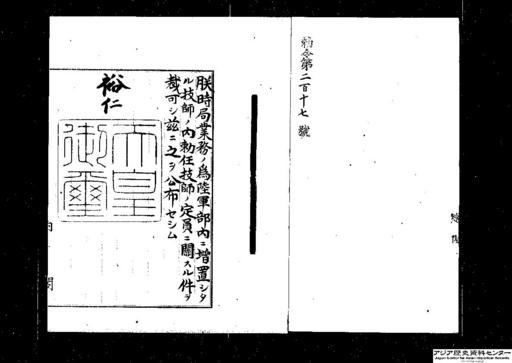 勅令第二百十七號
朕時局業務ノ爲陸軍部内ニ增置シタ
ル技師ノ内勅任技師ノ定員ニ關スル件ヲ
裁可シ茲ニ之ヲ公布セシム
裕仁
天皇
御璽
内閣
アジア歴史資料センター
Japan Center for Asian Historical Records